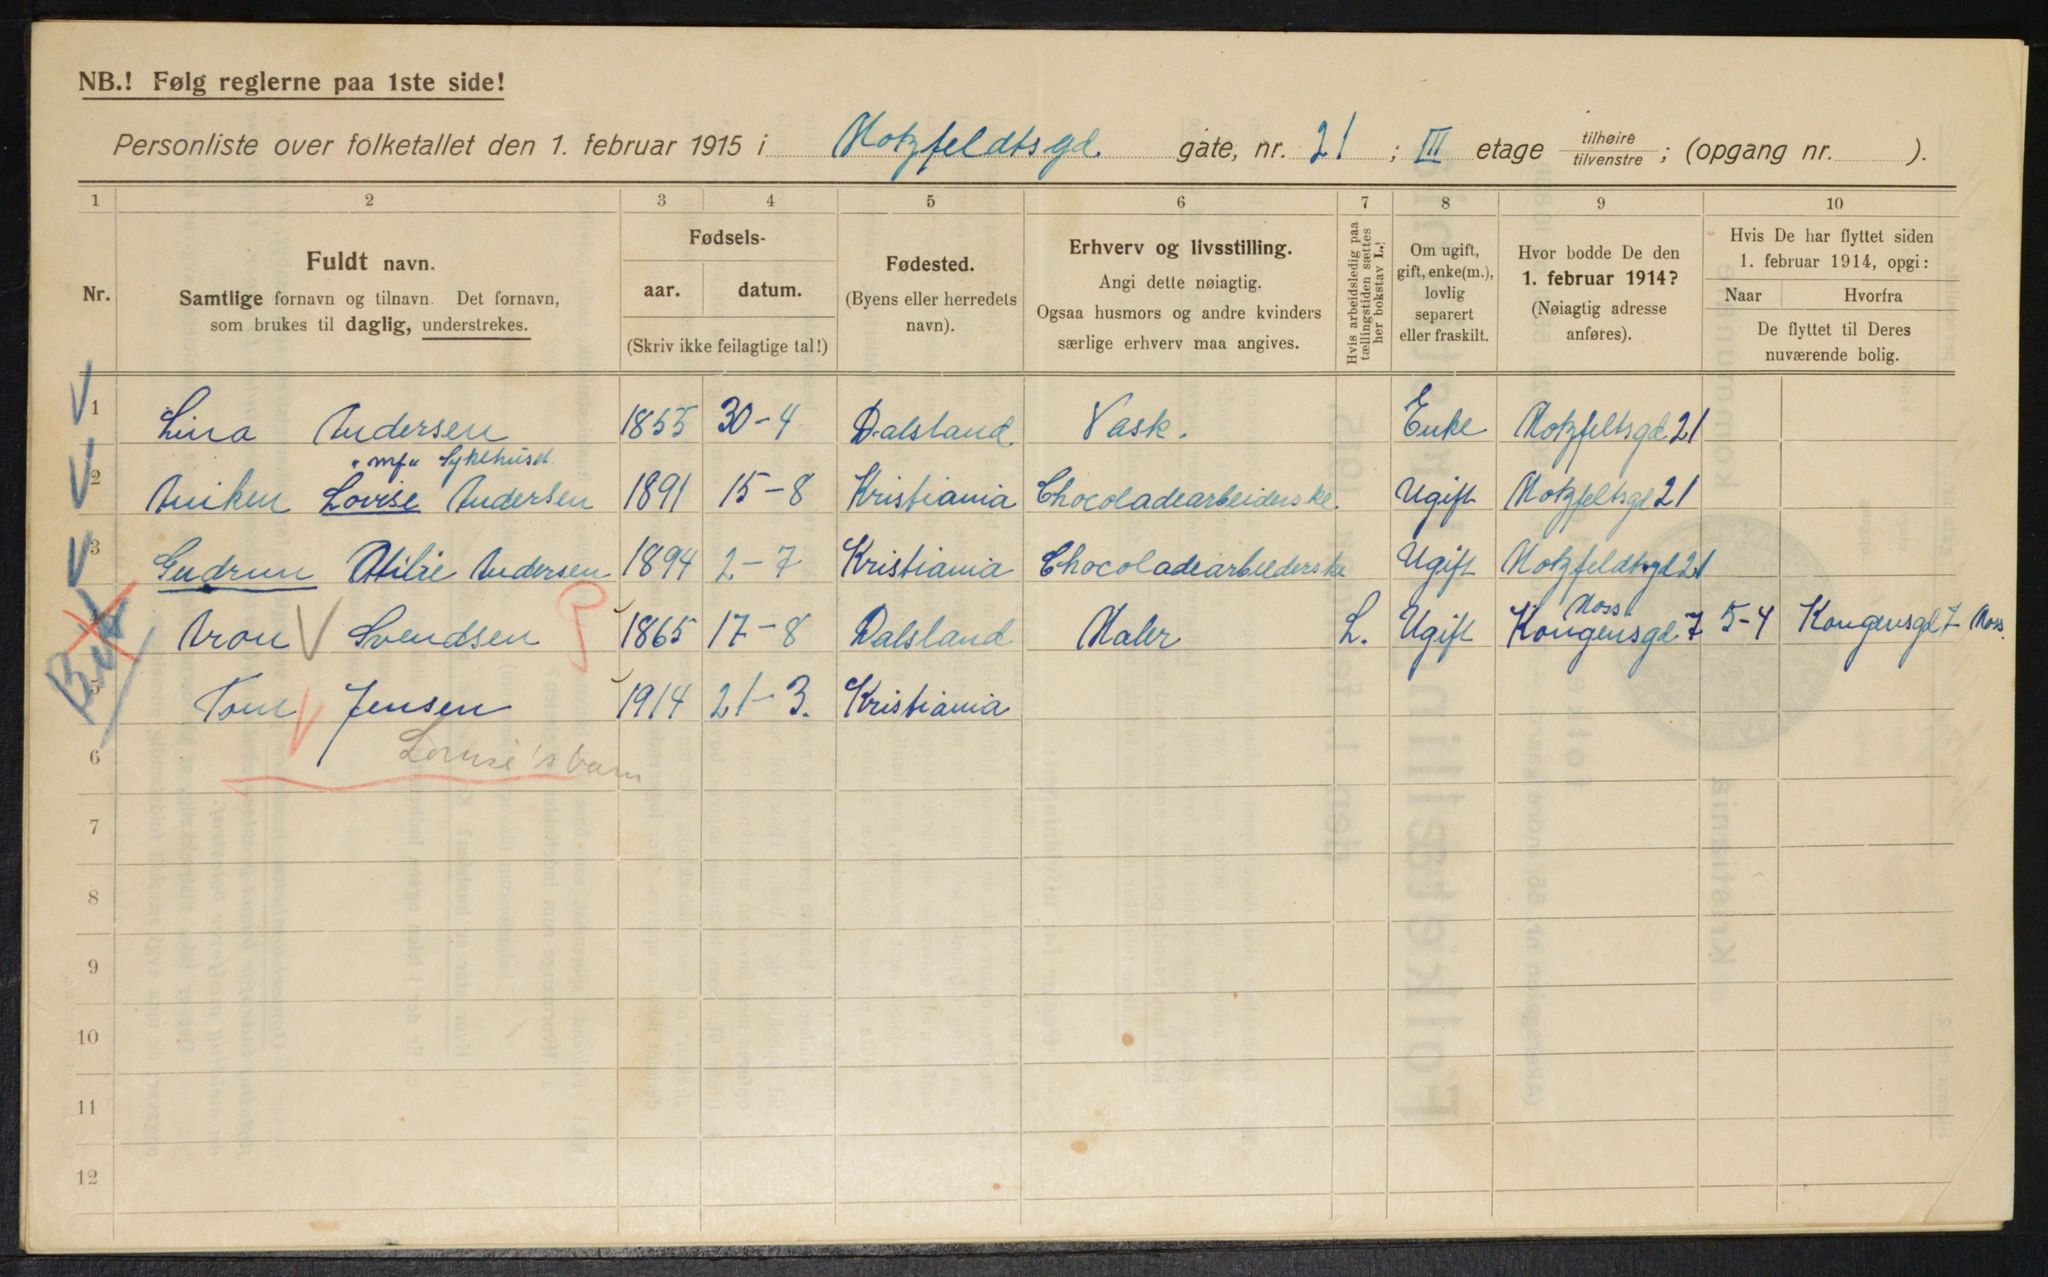 NB.! Følg reglerne paa 1ste side!
Personliste over folketallet den 1. februar 1915 i Motzfeldtsgd gate, nr. 21 ; III etage tilhøire tilvenstre ; (opgang nr. ).
1 2 3 4 5 6 7 8 9 10
Nr.
Fuldt navn.
Samtlige fornavn og tilnavn. Det fornavn,
som brukes til daglig, understrekes.
Fødsels-
aar. datum.
(Skriv ikke feilagtige tal!)
Fødested.
(Byens eller herredets
navn).
Erhverv og livsstilling.
Angi dette nøiagtig.
Ogsaa husmors og andre kvinders
særlige erhverv maa angives.
Hvis arbeidsledig paa
tællingstiden sættes
her bokstav L.
Om ugift,
gift, enke(m.),
lovlig
separert
eller fraskilt.
Hvor bodde De den
1. februar 1914?
(Nøiagtig adresse
anføres).
Hvis De har flyttet siden
1. februar 1914, opgi:
Naar Hvorfra
De flyttet til Deres
nuværende bolig.
1 Lina Andersen 1855 30-4 Dalsland Vask. Enke Motzfeltsgd 21
Sykehuset
2 Lovise Andersen 1891 15-8 Kristiania Chocoladearbeiderske Ugift Motzfeltsgd 21
3 Gudrun Otilie Andersen 1894 2-7 Kristiania Chocoladearbeiderske Ugift Motzfeldtsgd 21
Moss
4 Aron Svendsen 1865 17-8 Dalsland Maler L. Ugift Kongensgd 7 5-4 Kongensgd 7 Moss.
5 Tom Jensen 1914 21-3. Kristiania
6 Louise's barn
7
8
9
10
11
12